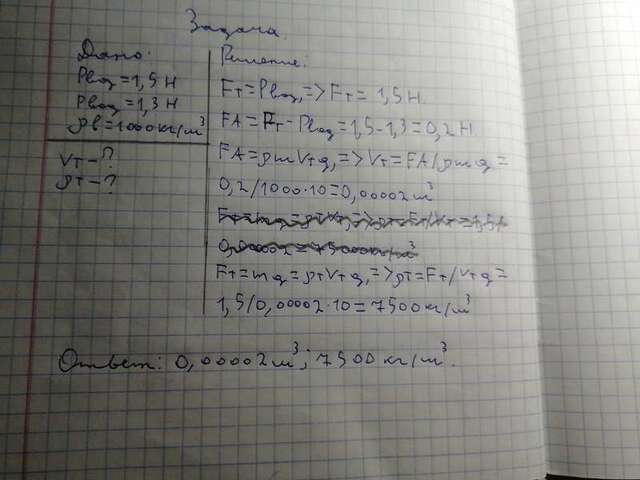 Задача
Дано:
Рвоз = 1,5 Н
Рвод = 1,3 Н
ρв = 1000 кг/м³
Vт - ?
ρт - ?
Решение:
Fт = Рвоз, => Fт = 1,5 Н
FA = Fт - Рвод = 1,5 - 1,3 = 0,2 Н
FA = ρж Vт g, => Vт = FA/ρж g =
0,2/1000·10 = 0,00002 м³
Fт = mg = ρт Vт g, => ρт = Fт/Vт g =
1,5/0,00002·10 = 7500 кг/м³
Ответ: 0,00002 м³; 7500 кг/м³.